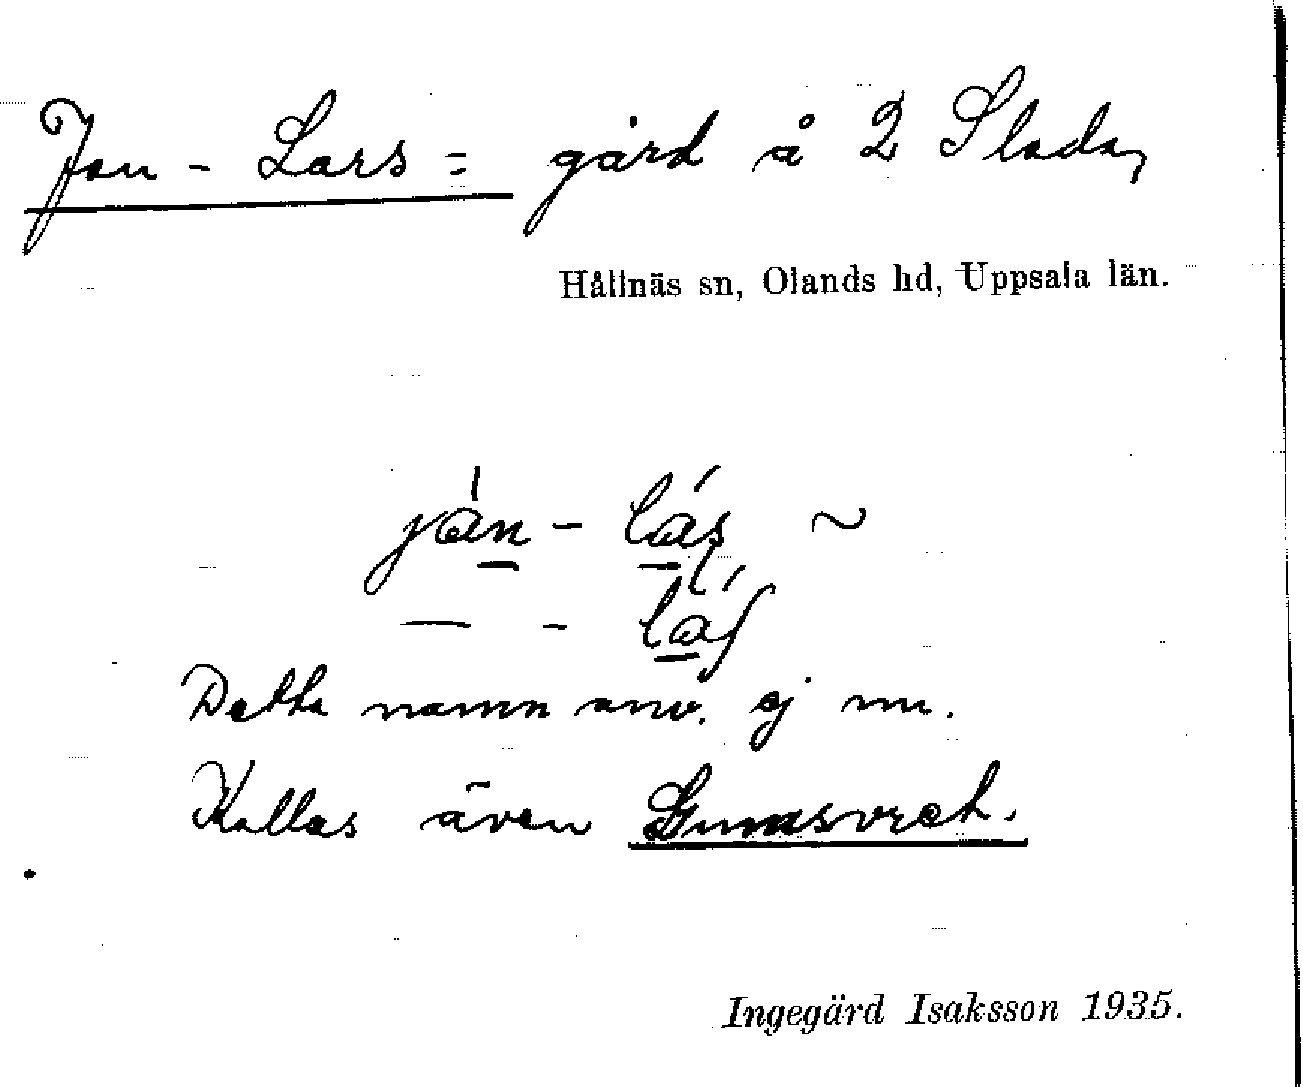 Jan-Lars= gård å 2 Slada,
Hållnäs sn, Olands hd, Uppsala län.
ján - lás ~
— - lás
Detta namn anv. ej nu.
Kallas även Gumsvret.
Ingegärd Isaksson 1935.